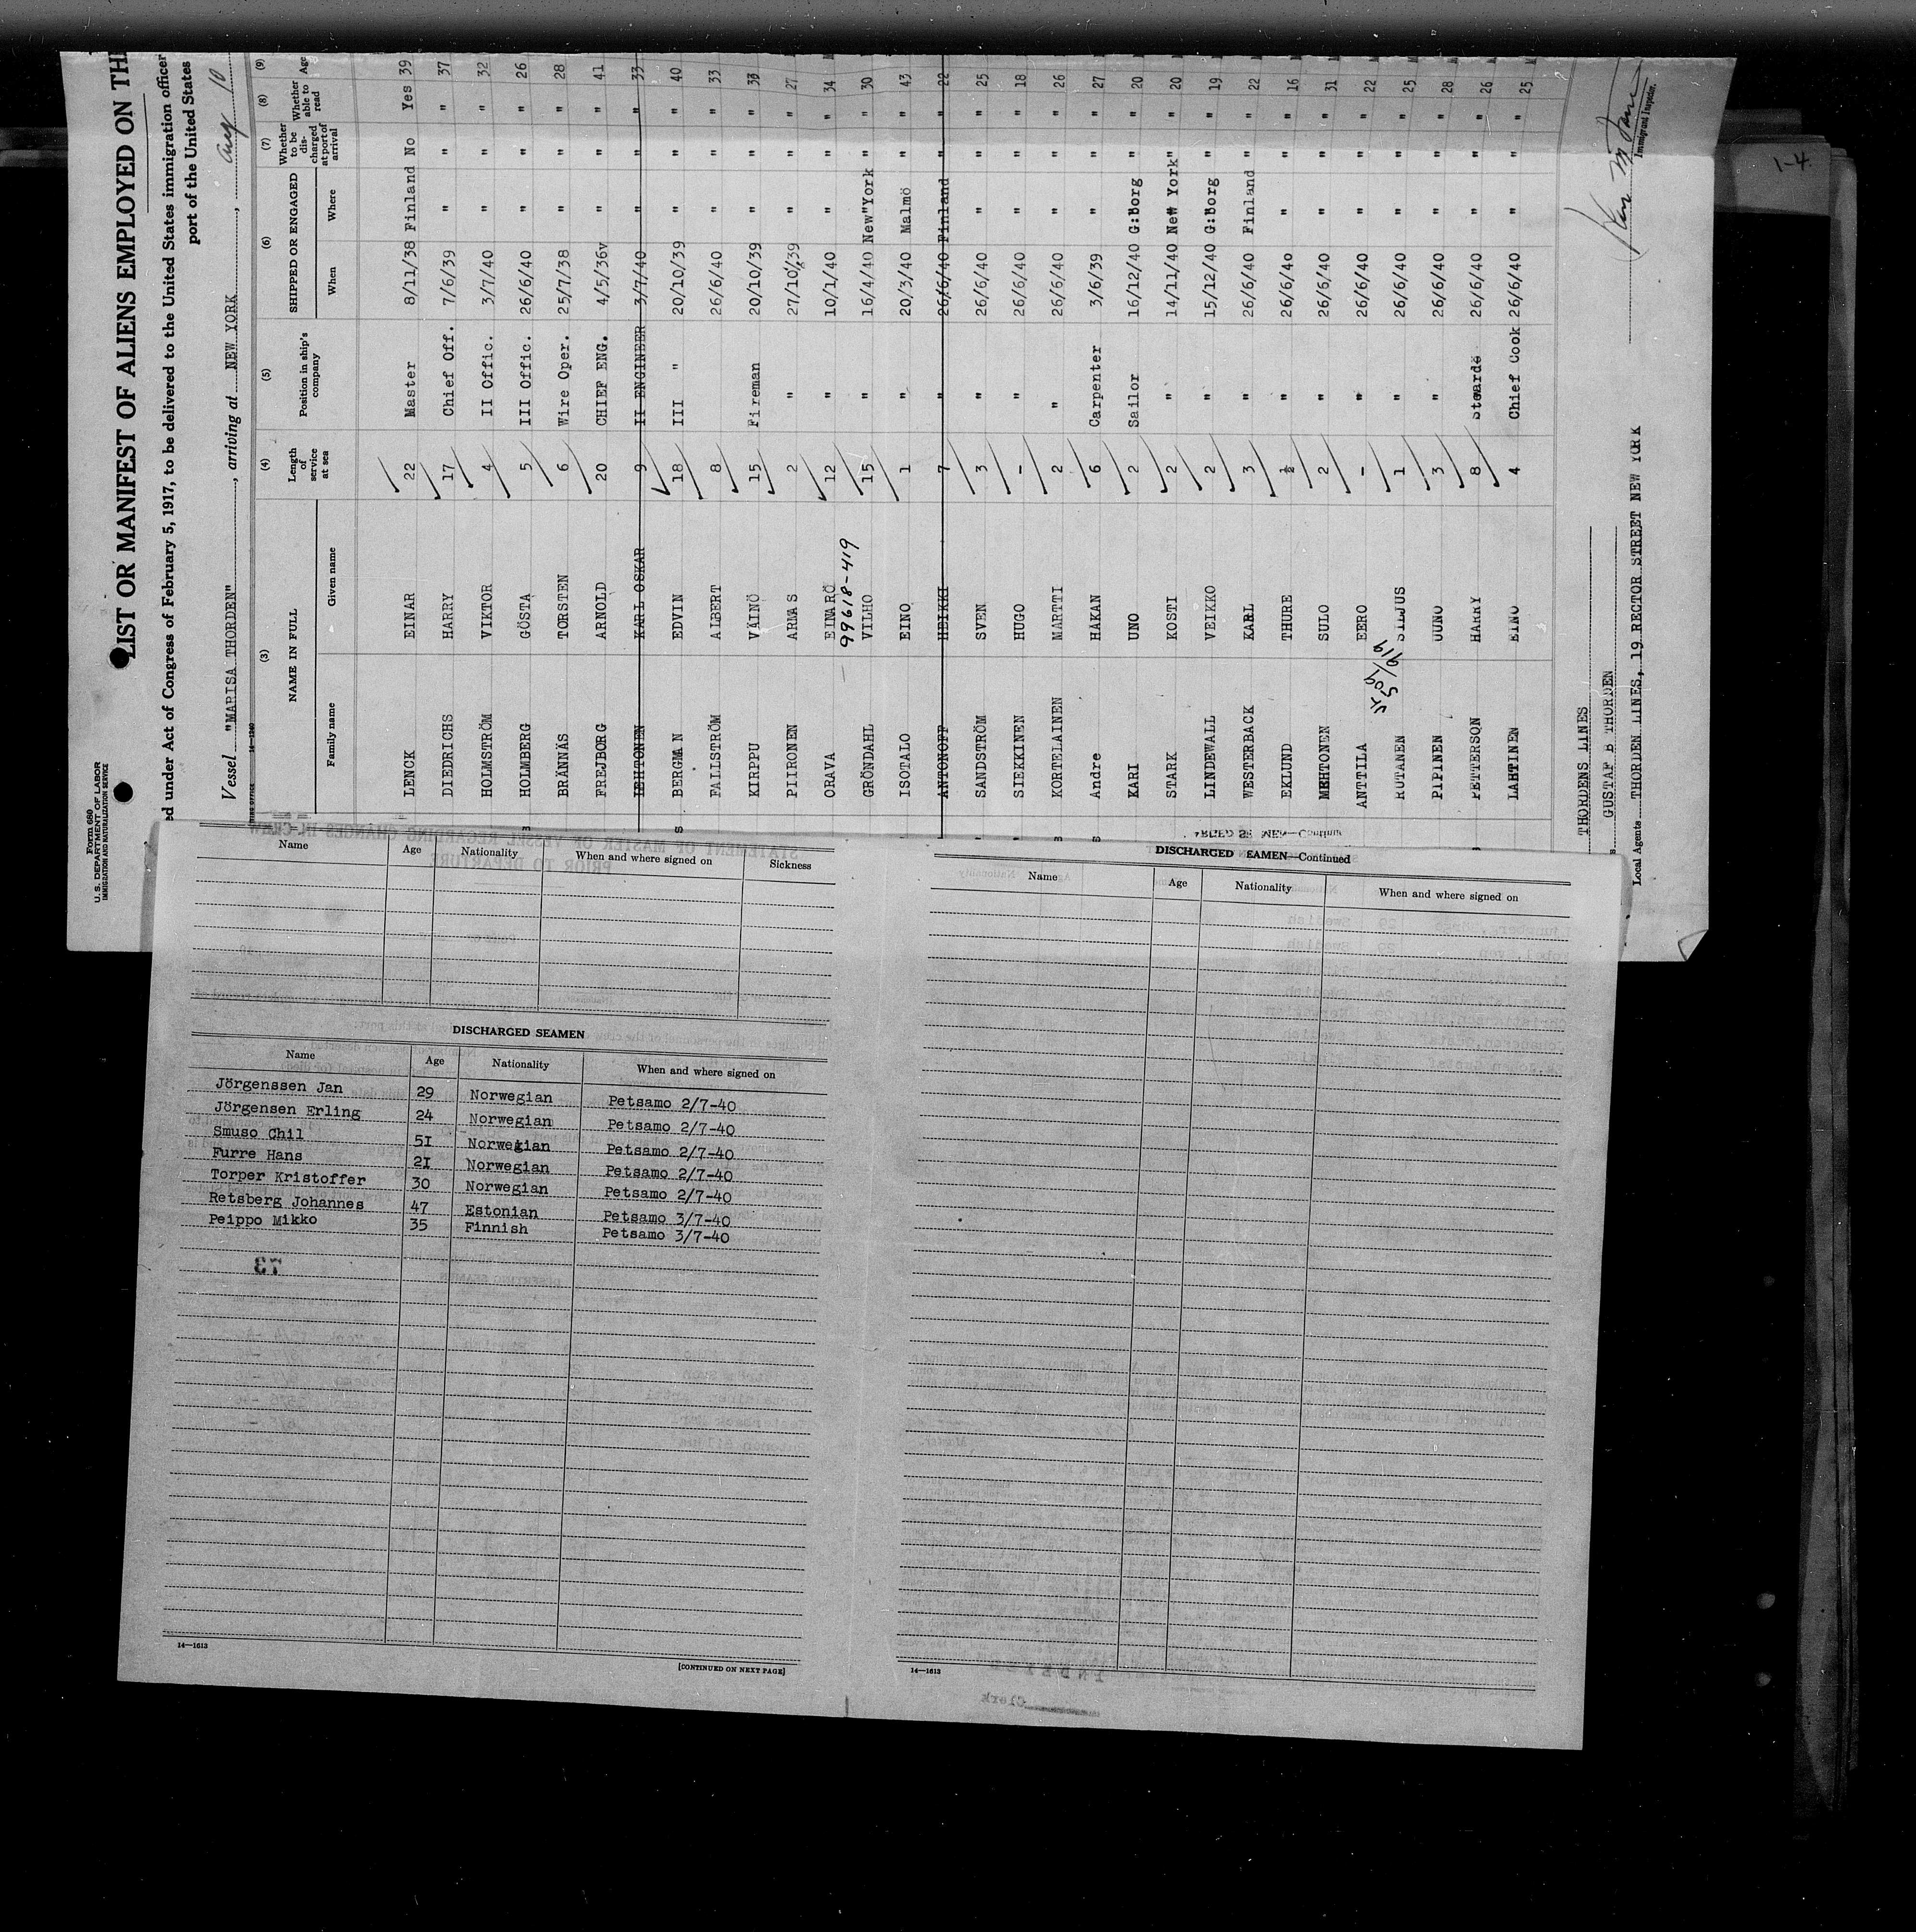 Form 680
U. S. DEPARTMENT OF LABOR
IMMIGRATION AND NATURALIZATION SERVICE
LIST OR MANIFEST OF ALIENS EMPLOYED ON TH
ed under Act of Congress of February 5, 1917, to be delivered to the United States immigration officer
port of the United States
Vessel "MARISA THORDEN", arriving at NEW YORK, Aug 10
14—1240
(3) (4) (5) (6) (7) (8) (9)
NAME IN FULL Length of service at sea Position in ship's company SHIPPED OR ENGAGED Whether to be discharged at port of arrival Whether able to read Age
Family name Given name When Where
LENCK EINAR 22 Master 8/11/38 Finland No Yes 39
DIEDRICHS HARRY 17 Chief Off. 7/6/39 " " " 37
HOLMSTRÖM VIKTOR 4 II Offic. 3/7/40 " " " 32
HOLMBERG GÖSTA 5 III Offic. 26/6/40 " " " 26
BRÄNNÄS TORSTEN 6 Wire Oper. 25/7/38 " " " 28
FREJBORG ARNOLD 20 CHIEF ENG. 4/5/36v " " " 41
LEHTONEN KARL OSKAR 9 II ENGINEER 3/7/40 " " " 33
BERGMAN EDVIN 18 III " 20/10/39 " " " 40
FALLSTRÖM ALBERT 8 26/6/40 " " " 33
KIRPPU VÄINÖ 15 Fireman 20/10/39 " " " 30
PIIRONEN ARMAS 2 " 27/10/39 " " " 27
ORAVA EINARÖ 12 " 10/1/40 " " " 34
99618-419
GRÖNDAHL VILHO 15 " 16/4/40 New"York " " 30
ISOTALO EINO 1 " 20/3/40 Malmö " " 43
ANTONOFF HEIKKI 7 " 26/6/40 Finland " " 22
SANDSTRÖM SVEN 3 " 26/6/40 " " " 25
SIEKKINEN HUGO - " 26/6/40 " " " 18
KORTELAINEN MARTTI 2 " 26/6/40 " " " 26
Andre HÅKAN 6 Carpenter 3/6/39 " " " 27
KARI UNO 2 Sailor 16/12/40 G:Borg " " 20
STARK KOSTI 2 " 14/11/40 New York" " 20
LINDEWALL VEIKKO 2 " 15/12/40 G:Borg " " 19
WESTERBACK KARL 3 " 26/6/40 Finland " " 22
EKLUND THURE ½ " 26/6/40 " " " 16
MEHTONEN SULO 2 " 26/6/40 " " " 31
ANTTILA EERO - " 26/6/40 " " " 22
RUTANEN SILJUS 1 " 26/6/40 " " " 25
PIPINEN UUNO 3 " 26/6/40 " " " 28
PETTERSON HARRY 8 Stewards 26/6/40 " " " 26
LAHTINEN EINO 4 Chief Cook 26/6/40 " " " 25
THORDENS LINES
GUSTAF B THORDEN
Local Agents THORDEN LINES, 19 RECTOR STREET NEW YORK
Immigrant Inspector.
1-4.
Name Age Nationality When and where signed on Sickness
DISCHARGED SEAMEN
Name Age Nationality When and where signed on
Jörgenssen Jan 29 Norwegian Petsamo 2/7-40
Jörgensen Erling 24 Norwegian Petsamo 2/7-40
Smuso Chil 5I Norwegian Petsamo 2/7-40
Furre Hans 2I Norwegian Petsamo 2/7-40
Torper Kristoffer 30 Norwegian Petsamo 2/7-40
Retsberg Johannes 47 Estonian Petsamo 3/7-40
Peippo Mikko 35 Finnish Petsamo 3/7-40
73
14—1613
[CONTINUED ON NEXT PAGE]
DISCHARGED SEAMEN—Continued
Name Age Nationality When and where signed on
14—1613
Clerk